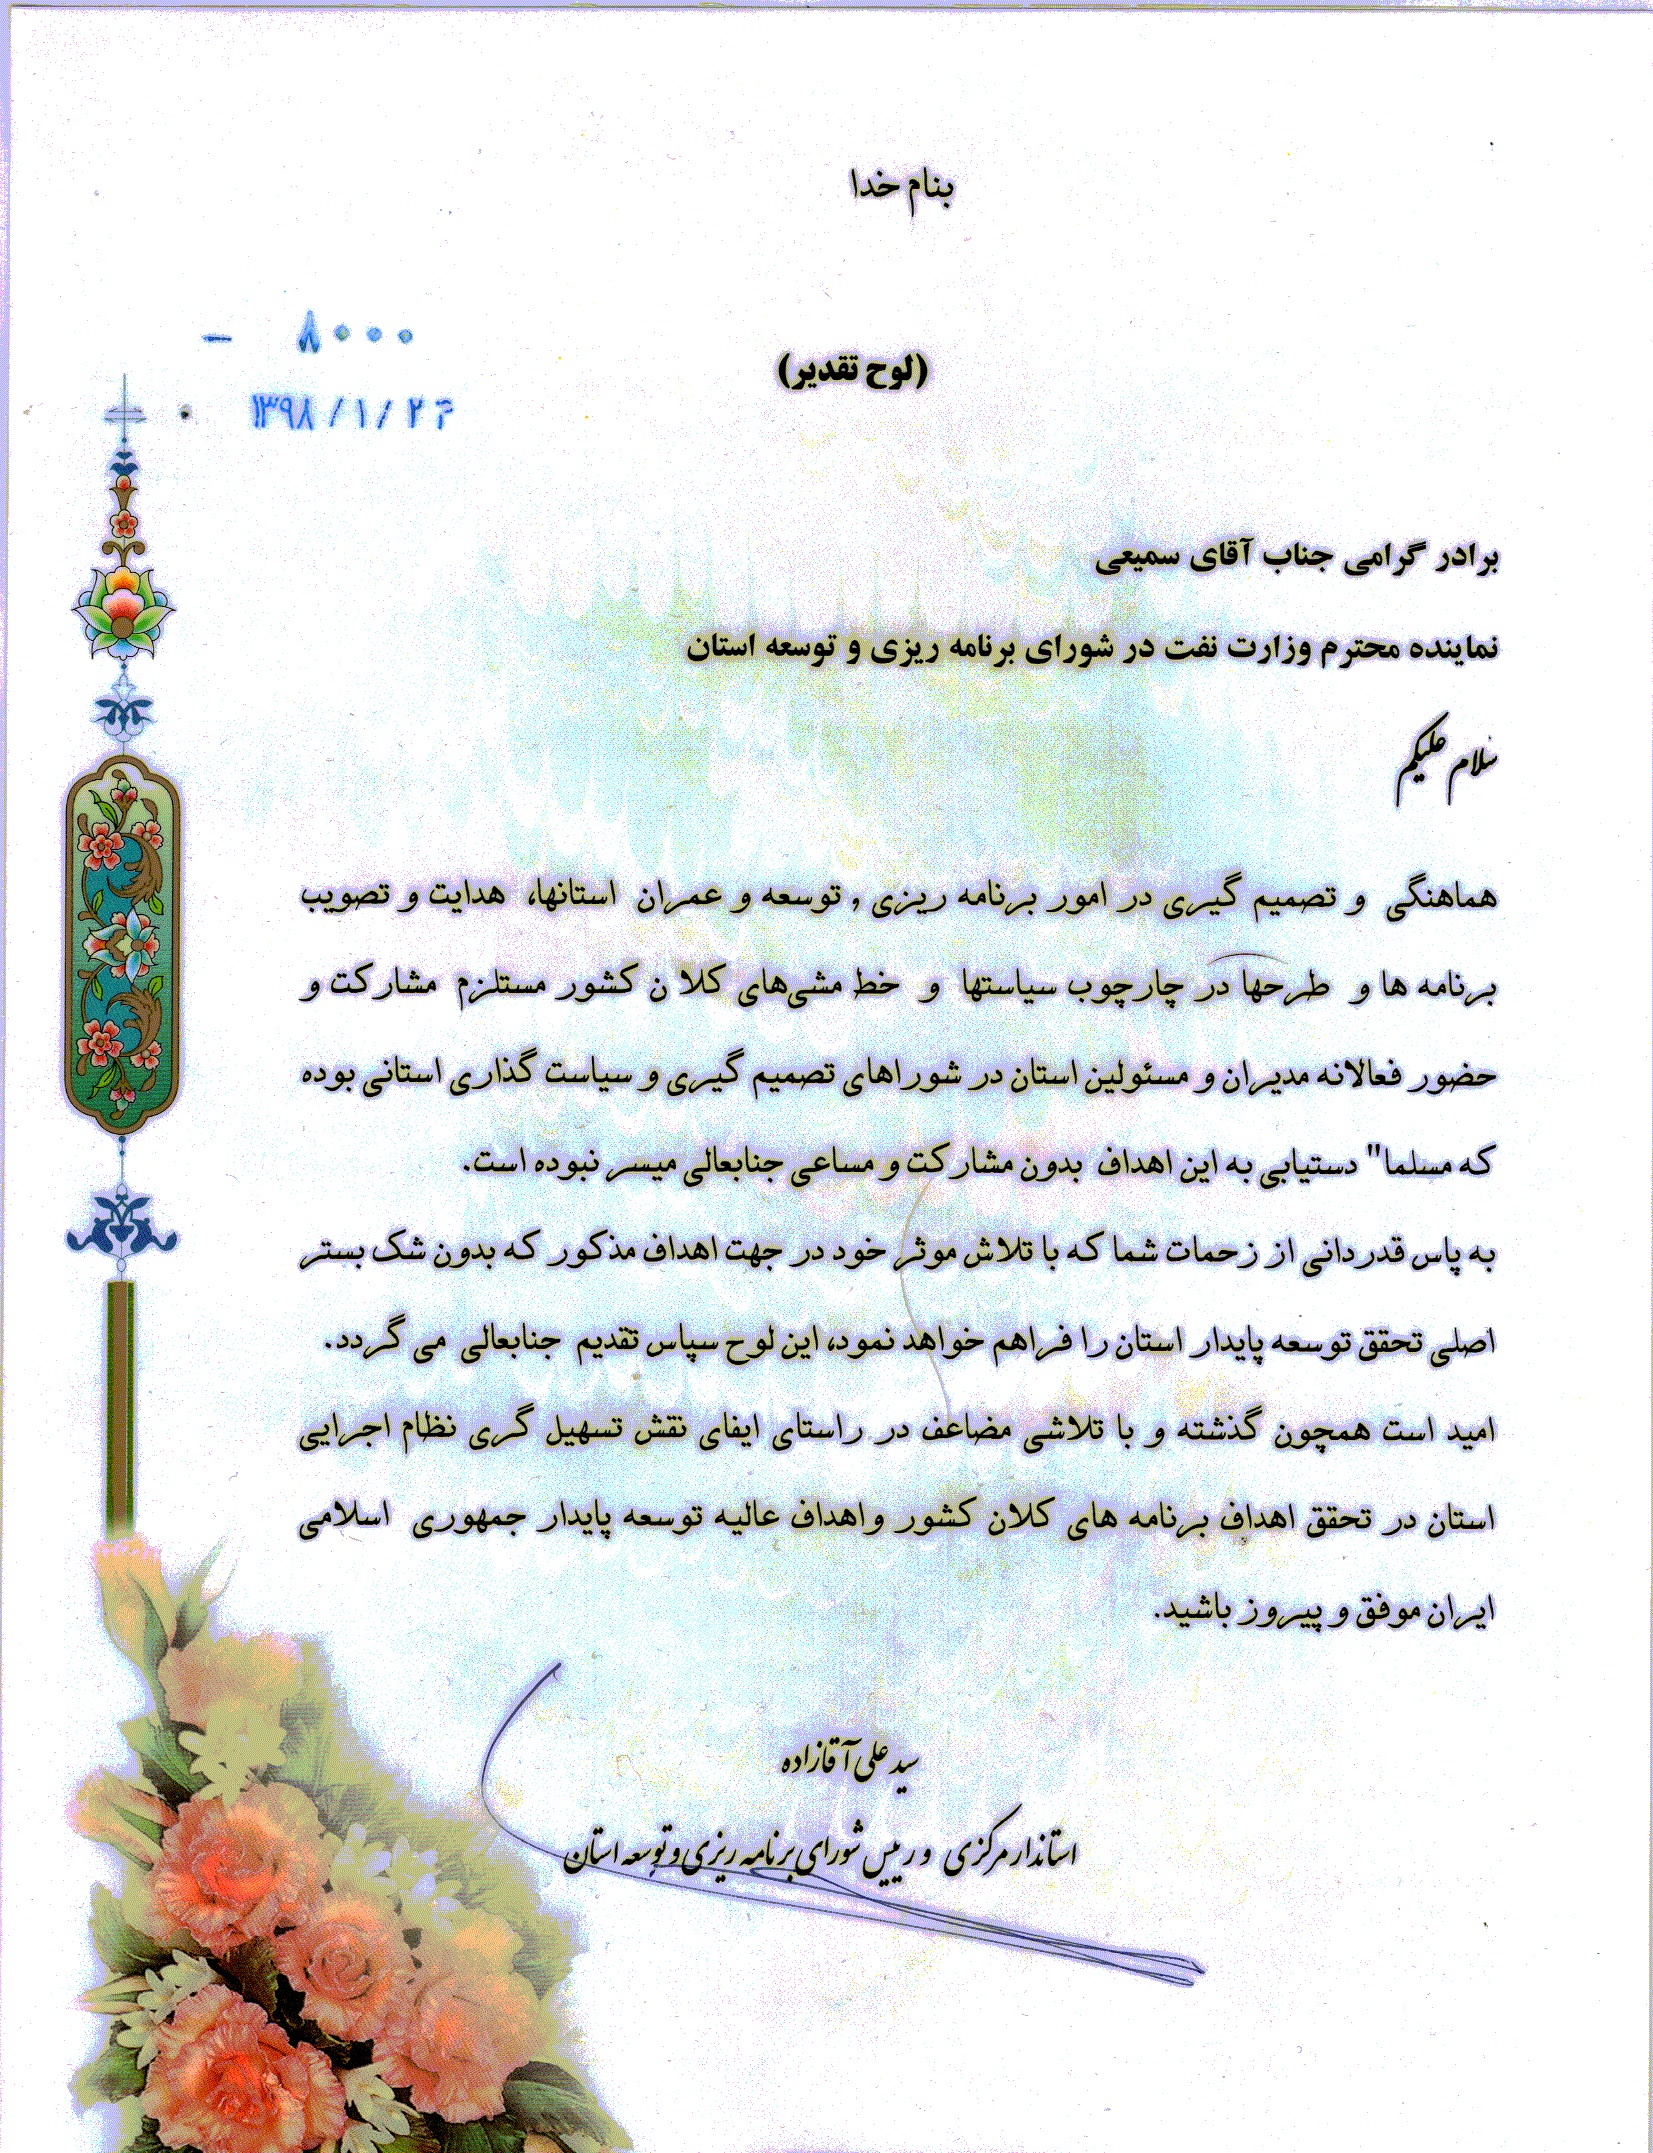 بنام خدا
۸۰۰۰ -
(لوح تقدیر)
۱۳۹۸/۱/۲
برادر گرامی جناب آقای سمیعی
نماینده محترم وزارت نفت در شورای برنامه ریزی و توسعه استان
سلام علیکم
هماهنگی و تصمیم گیری در امور برنامه ریزی , توسعه و عمران استانها، هدایت و تصویب
برنامه ها و طرحها در چارچوب سیاستها و خط مشی‌های کلا ن کشور مستلزم مشارکت و
حضور فعالانه مدیران و مسئولین استان در شوراهای تصمیم گیری و سیاست گذاری استانی بوده
که مسلما" دستیابی به این اهداف بدون مشارکت و مساعی جنابعالی میسر نبوده است.
به پاس قدردانی از زحمات شما که با تلاش موثر خود در جهت اهداف مذکور که بدون شک بستر
اصلی تحقق توسعه پایدار استان را فراهم خواهد نمود، این لوح سپاس تقدیم جنابعالی می گردد.
امید است همچون گذشته و با تلاشی مضاعف در راستای ایفای نقش تسهیل گری نظام اجرایی
استان در تحقق اهداف برنامه های کلان کشور واهداف عالیه توسعه پایدار جمهوری اسلامی
ایران موفق و پیروز باشید.
سید علی آقازاده
استاندار مرکزی و رییس شورای برنامه ریزی و توسعه استان